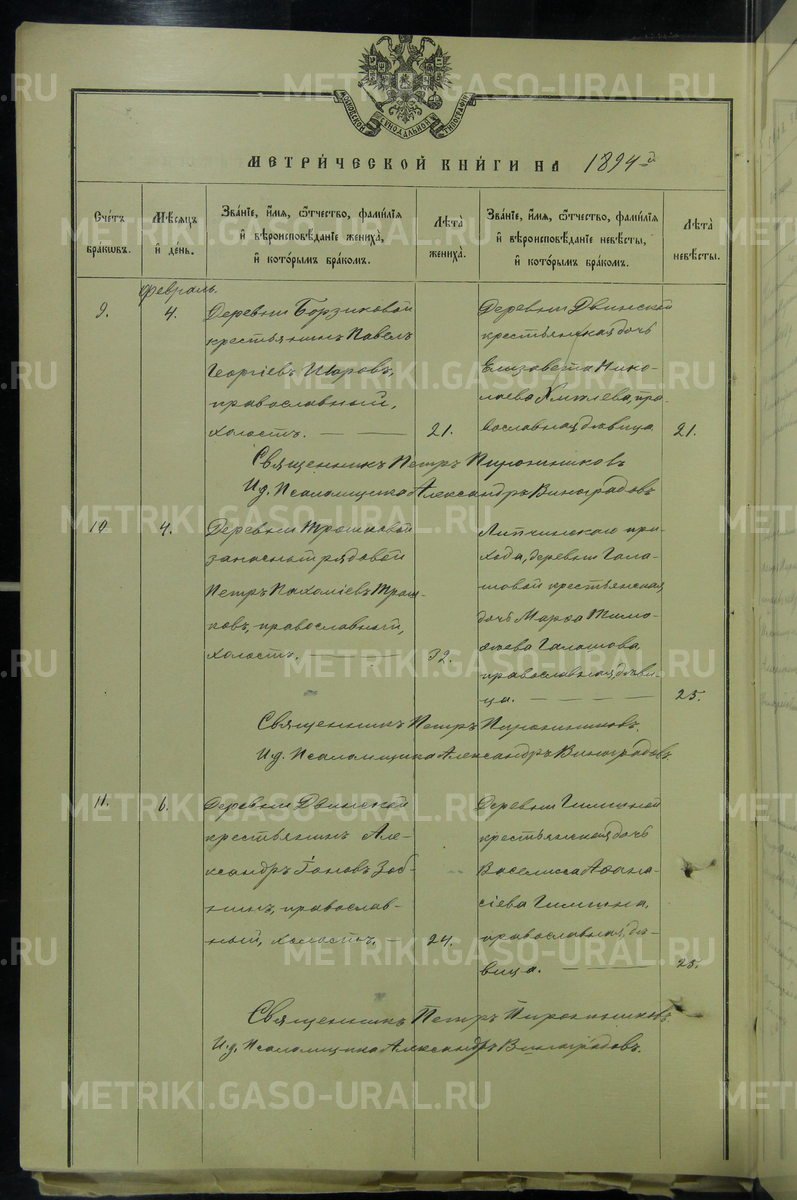 МОСКОВСКОЙ СѴНОДАЛЬНОЙ ТИПОГРАФІИ
МЕТРИ́ЧЕСКОЙ КНИ́ГИ НА 1894 г҃
Сче́тъ бра́кωвъ.
Мѣ́сѧцъ и҆ де́нь.
Зва́нїе, и҆́мѧ, ѻ҆́тчество, фами́лїѧ и҆ вѣроисповѣ́данїе жениха̀, и҆ кото́рымъ бра́комъ.
Лѣ́та жениха̀.
Зва́нїе, и҆́мѧ, ѻ҆́тчество, фами́лїѧ и҆ вѣроисповѣ́данїе невѣ́сты, и҆ кото́рымъ бра́комъ.
Лѣ́та невѣ́сты.
Февраль.
9.
4.
Деревни Борзиковой
крестьянинъ Павелъ
Георгіевъ
православный,
холостъ.
21.
Деревни Двинской
крестьянская дочь
Елизовета Нико-
лаева пра-
вославная, дѣвица
21.
Священникъ Петръ
И.д. Псаломщика Александръ Виноградовъ
10
4.
Деревни Трошковой
запасный рядовой
Петръ Пахоміевъ Трош-
ковъ, православный,
холостъ.
32.
Липчинскаго при-
хода, деревни Гала-
шовой крестьянская
дочь Марѳа Тимо-
ѳеева Галашова,
православная, дѣви-
ца.
25.
Священникъ Петръ
И.д. Псаломщика Александръ Виноградовъ.
11.
6.
Деревни Двинской
крестьянинъ Але-
ксандръ Іоновъ Зоб-
нинъ, православ-
ный, холостъ.
24.
Деревни Гилиной
крестьянская дочь
Васелисса Аѳана-
сіева Гилина,
православная, дѣ-
вица.
25.
Священникъ Петръ
И.д. Псаломщика Александръ Виноградовъ.
METRIKI.GASO-URAL.RU